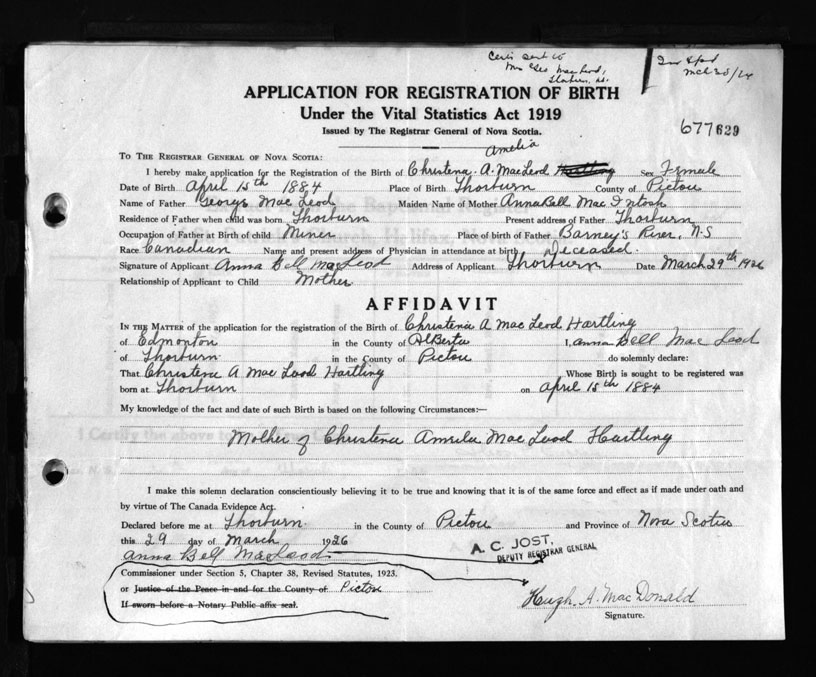 Certi sent to
Mrs Geo MacLeod,
Thorburn, N.S.
2nd
Mch 30/26
APPLICATION FOR REGISTRATION OF BIRTH
Under the Vital Statistics Act 1919
Issued by The Registrar General of Nova Scotia.
677629
Amelia
TO THE REGISTRAR GENERAL OF NOVA SCOTIA:
I hereby make application for the Registration of the Birth of Christena A. MacLeod Hartling Sex Female
Date of Birth April 15th 1884 Place of Birth Thorburn County of Pictou
Name of Father George Mac Leod Maiden Name of Mother AnnaBell Mac Intosh
Residence of Father when child was born Thorburn Present address of Father Thorburn
Occupation of Father at Birth of child Miner Place of birth of Father Barney's River, N-S
Race Canadian Name and present address of Physician in attendance at birth Deceased.
Signature of Applicant Anna Bell MacLeod Address of Applicant Thorburn Date March 29th 1926
Relationship of Applicant to Child Mother
AFFIDAVIT
IN THE MATTER of the application for the registration of the Birth of Christena A Mac Leod Hartling
of Edmonton in the County of AlBerta I, Anna Bell Mac Leod
of Thorburn in the County of Pictou do solemnly declare:
That Christena A Mac Leod Hartling Whose Birth is sought to be registered was
born at Thorburn on April 15th 1884
My knowledge of the fact and date of such Birth is based on the following Circumstances:—
Mother of Christena Amelia Mac Leod Hartling
I make this solemn declaration conscientiously believing it to be true and knowing that it is of the same force and effect as if made under oath and
by virtue of The Canada Evidence Act.
Declared before me at Thorburn in the County of Pictou and Province of Nova Scotia
this 29 day of March 1926
Anna Bell MacLeod
A. C. JOST,
DEPUTY REGISTRAR GENERAL
Commissioner under Section 5, Chapter 38, Revised Statutes, 1923.
or Justice of the Peace in and for the County of Pictou
If sworn before a Notary Public affix seal.
Hugh. A. Mac Donald
Signature.